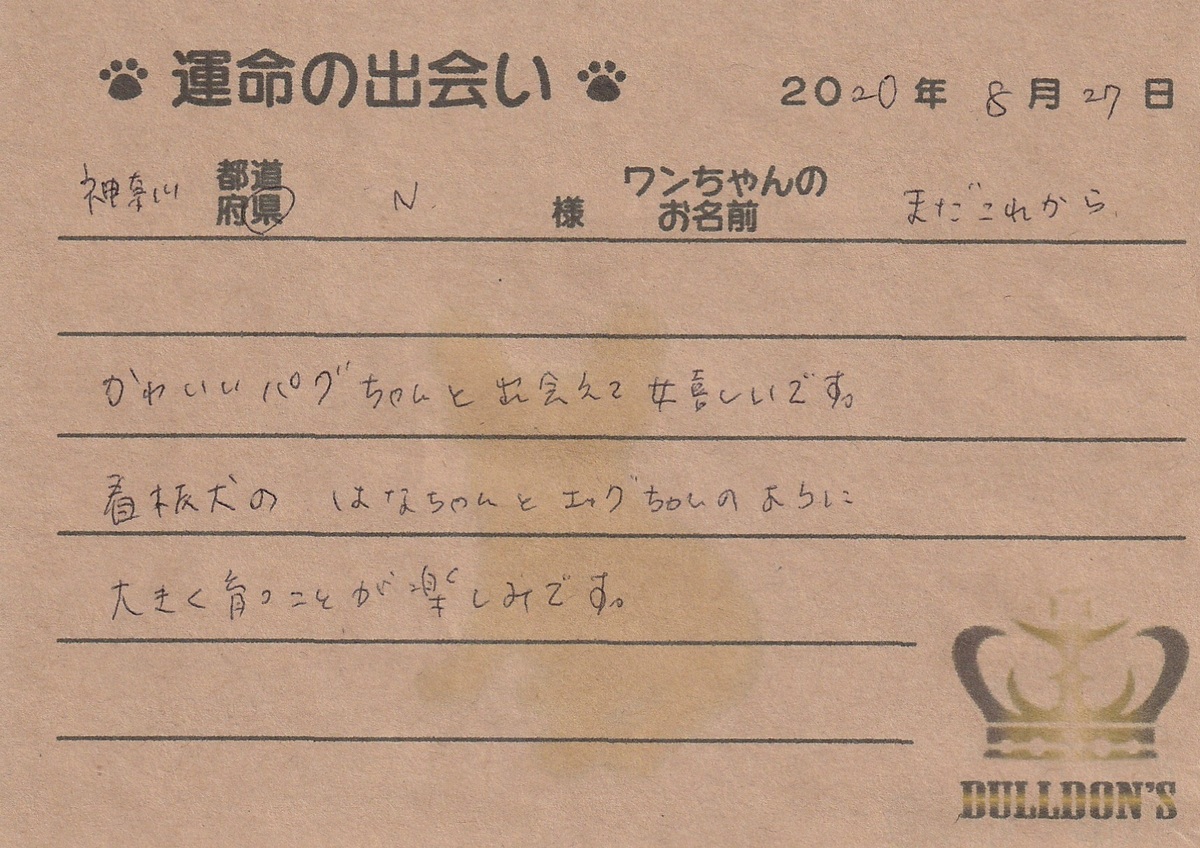 運命の出会い 2020年 8月27日
神奈川 都道府県 N. 様 ワンちゃんのお名前 まだこれから.
かわいいパグちゃんと出会えて嬉しいです。
看板犬の はなちゃんとエッグちゃんのように
大きく育つことが楽しみです。
BULLDON'S